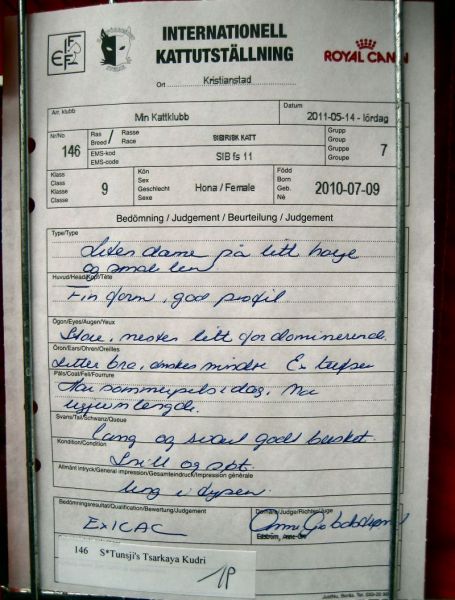 FIFe
INTERNATIONELL
KATTUTSTÄLLNING
ROYAL CANIN
Ort Kristianstad
Arr. klubb Min Kattklubb Datum 2011-05-14 - lördag
Nr/No 146 Ras / Rasse Breed / Race SIBIRISK KATT Grupp Group Gruppe Groupe 7
EMS-kod EMS-code SIB fs 11
Klass Class Klasse Classe 9 Kön Sex Geschlecht Sexe Hona / Female Född Born Geb. Né 2010-07-09
Bedömning / Judgement / Beurteilung / Judgement
Type/Type
Liten dame på litt høye
og smale ben
Huvud/Head/Kopf/Tête
Fin form, god profil
Ögon/Eyes/Augen/Yeux
Store, nesten litt for dominerende.
Öron/Ears/Ohren/Oreilles
Sitter bra, ønskes mindre Ex tufser
Päls/Coat/Fell/Fourrure
Har sommerpels i dag, noe
ujevn lengde.
Svans/Tail/Schwanz/Queue
Lang og svært godt busket.
Kondition/Condition
Snill og søt.
Allmänt intryck/General impression/Gesamteindruck/Impression générale
Ung i typen.
Bedömningsresultat/Qualification/Bewertung/Judgement
Ex1CAC
Domare/Judge/Richter/Juge
146 S*Tunsji's Tsarkaya Kudri
1P